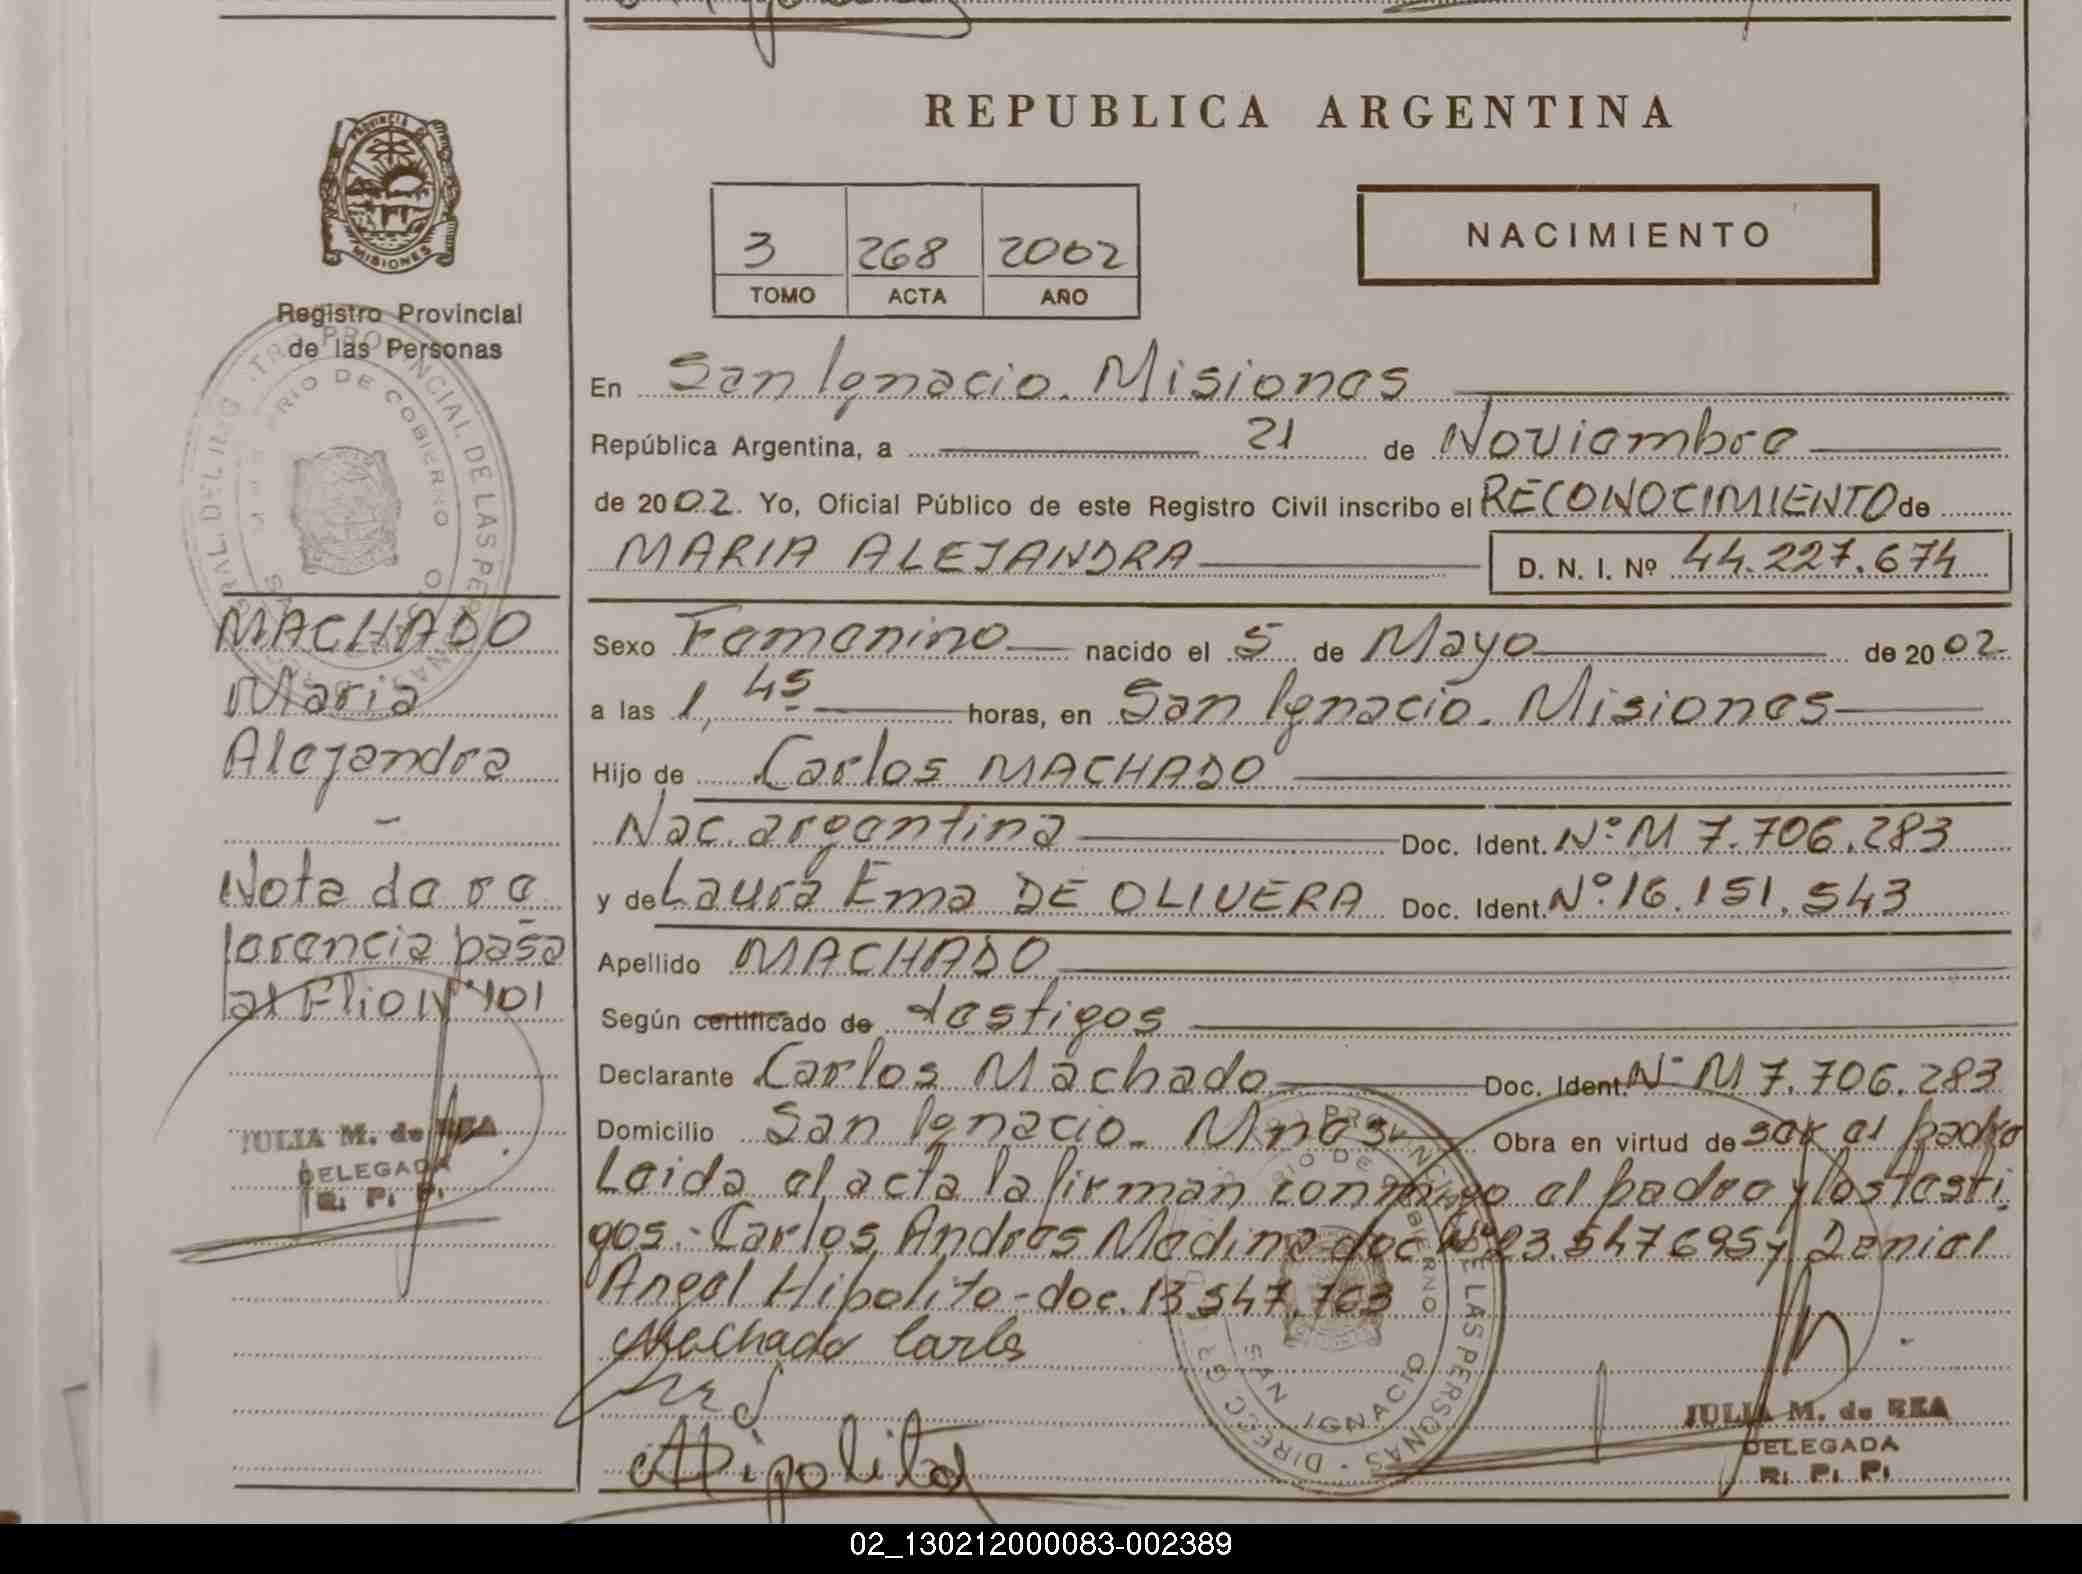 REPUBLICA ARGENTINA
PROVINCIA DE
MISIONES
Registro Provincial
de las Personas
3 268 2002
TOMO ACTA AÑO
NACIMIENTO
En San Ignacio. Misiones
República Argentina, a 21 de Noviembre
de 2002. Yo, Oficial Público de este Registro Civil inscribo el RECONOCIMIENTO de
MARIA ALEJANDRA D. N. I. Nº 44.227.674
Sexo Femenino nacido el 5 de Mayo de 2002
a las 1,45 horas, en San Ignacio. Misiones
Hijo de Carlos MACHADO
Nac. argentina Doc. Ident. Nº M 7.706.283
y de Laura Ema DE OLIVERA Doc. Ident. Nº 16.151.543
Apellido MACHADO
Según certificado de testigos
Declarante Carlos Machado Doc. Ident. Nº M 7.706.283
Domicilio San Ignacio. Mnes. Obra en virtud de ser el padre
Leida el acta la firman conmigo el padre y los testi
gos.- Carlos Andres Medina doc Nº 23.547695 y Deniel
Angel Hipolito - doc. 13 547.703
Machado Carls
Hipolito
MACHADO
Maria
Alejandra
-
Nota de re
ferencia pasa
al Flio Nº 101
JULIA M. de REA
DELEGADA
R. P. P.
JULIA M. de REA
DELEGADA
R. P. P.
SAN IGNACIO
02_130212000083-002389